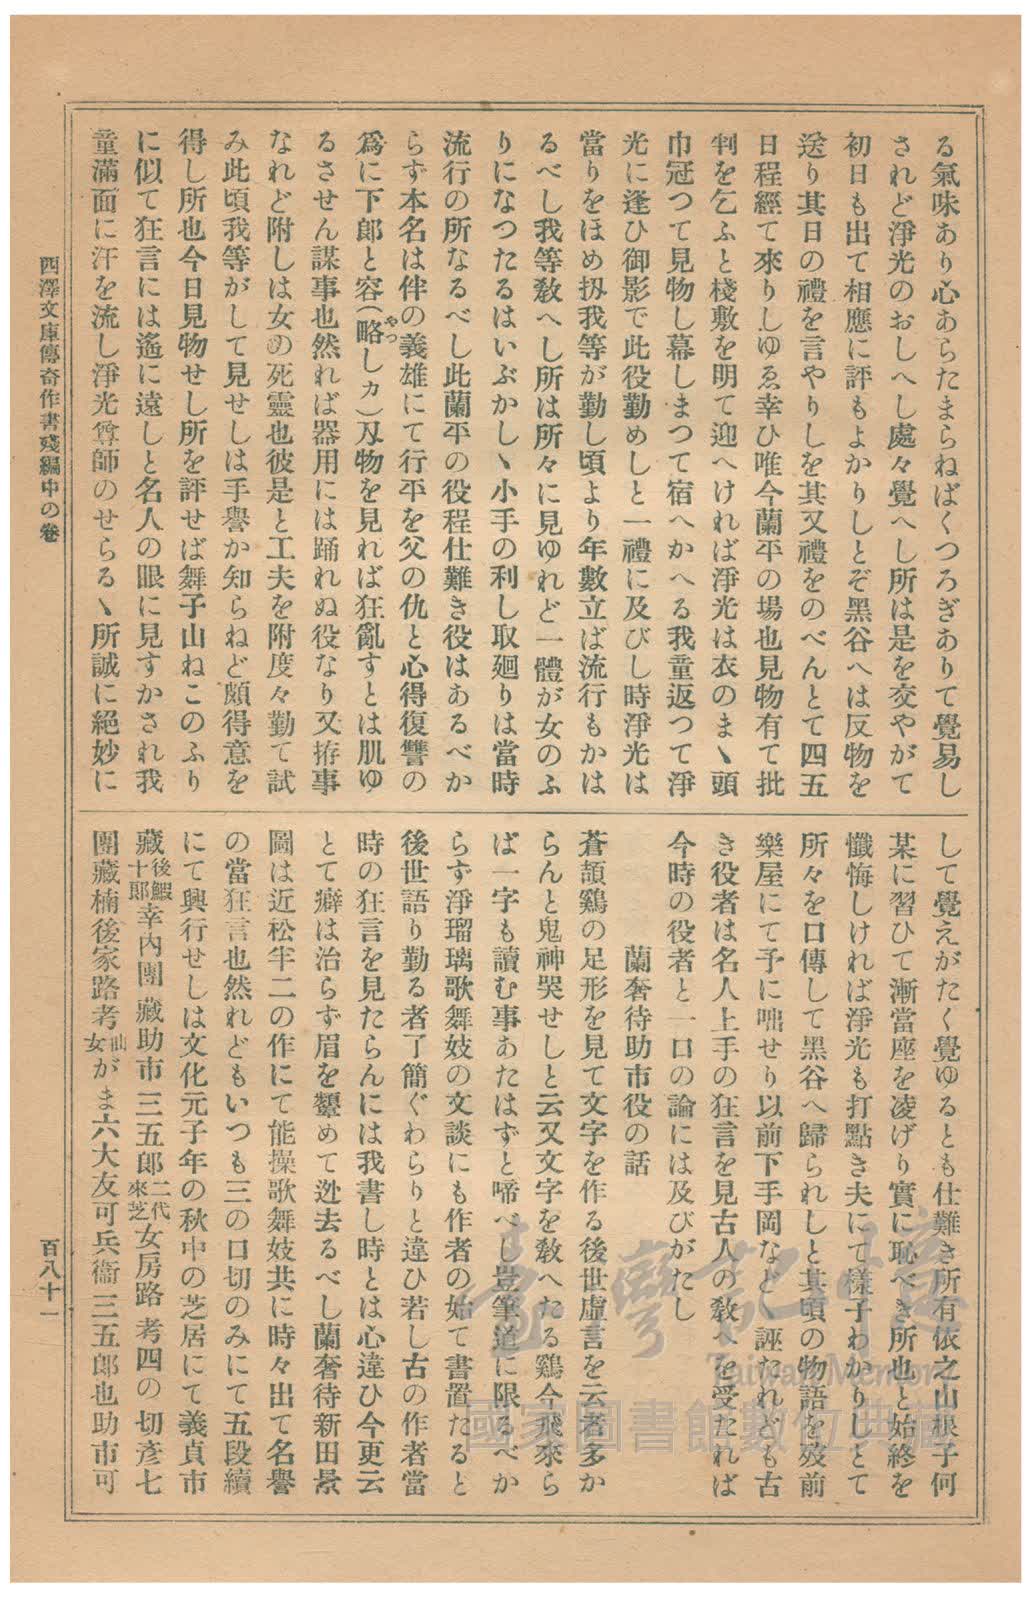 る氣味あり心あらたまらねばくつろぎありて覺易し
されど淨光のおしへし處々覺へし所は是を交やがて
初日も出て相應に評もよかりしとぞ黑谷へは反物を
送り其日の禮を言やりしを其又禮をのべんとて四五
日程經て來りしゆゑ幸ひ唯今蘭平の場也見物有て批
判を乞ふと棧敷を明て迎へければ淨光は衣のまゝ頭
巾冠つて見物し幕しまつて宿へかへる我童返つて淨
光に逢ひ御影で此役勤めしと一禮に及びし時淨光は
當りをほめ扨我等が勤し頃より年數立ば流行もかは
るべし我等敎へし所は所々に見ゆれど一體が女のふ
りになつたるはいぶかしゝ小手の利し取廻りは當時
流行の所なるべし此蘭平の役程仕難き役はあるべか
らず本名は伴の義雄にて行平を父の仇と心得復讐の
爲に下郎と容(略しカ)刄物を見れば狂亂すとは肌ゆ
やつ
るさせん謀事也然れば器用には踊れぬ役なり又拵事
なれど附しは女の死靈也彼是と工夫を附度々勤て試
み此頃我等がして見せしは手譽か知らねど頗得意を
得し所也今日見物せし所を評せば舞子山ねこのふり
に似て狂言には遙に遠しと名人の眼に見すかされ我
童滿面に汗を流し淨光尊師のせらるゝ所誠に絕妙に
して覺えがたく覺ゆるとも仕難き所有依之山根子何
某に習ひて漸當座を凌げり實に恥べき所也と始終を
懺悔しければ淨光も打點き夫にて樣子わかりしとて
所々を口傳して黑谷へ歸られしと其頃の物語を歿前
樂屋にて予に咄せり以前下手岡などゝ誣たれども古
き役者は名人上手の狂言を見古人の敎へを受たれば
今時の役者と一口の論には及びがたし
蘭奢待助市役の話
蒼頡鷄の足形を見て文字を作る後世虛言を云者多か
らんと鬼神哭せしと云又文字を敎へたる鷄今飛來ら
ば一字も讀む事あたはずと啼べし豈筆道に限るべか
らず淨瑠璃歌舞妓の文談にも作者の始て書置たると
後世語り勤る者了簡ぐわらりと違ひ若し古の作者當
時の狂言を見たらんには我書し時とは心違ひ今更云
とて癖は治らず眉を顰めて迯去るべし蘭奢待新田景
圖は近松半二の作にて能操歌舞妓共に時々出て名譽
の當狂言也然れどもいつも三の口切のみにて五段續
にて興行せしは文化元子年の秋中の芝居にて義貞市
藏後鰕十郎幸內團藏助市三五郎二代來芝女房路考四の切彥七
團藏楠後家路考仙女がま六大友可兵衞三五郎也助市可
西澤文庫傳奇作書殘編中の卷
百八十一
臺灣記憶
Taiwan Memory
國家圖書館數位典藏